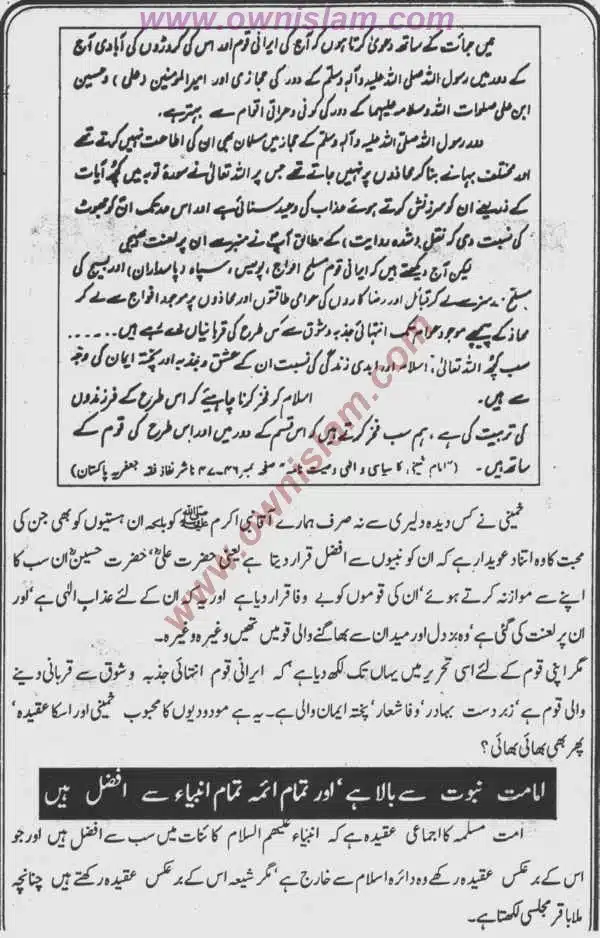 www.ownislam.com
میں جرأت کے ساتھ دعویٰ کرتا ہوں کہ آج کی ایرانی قوم اور اس کی کروڑوں کی آبادی آج
کے دور میں رسول اللہ صلی اللہ علیہ وآلہ وسلم کے دور کی حجازی اور امیر المؤمنین (علی) وحسین
ابن علی صلوات اللہ وسلامہ علیہما کے دور کی کوفی و عراقی اقوام سے بہتر ہے۔
دور رسول اللہ صلی اللہ علیہ وآلہ وسلم کے حجاز میں مسلمان بھی ان کی اطاعت نہیں کرتے تھے
اور مختلف بہانے بنا کر محاذوں پر نہیں جاتے تھے جس پر اللہ تعالیٰ نے سورۃ توبہ میں کچھ آیات
کے ذریعے ان کو سرزنش کرتے ہوئے عذاب کی وعید سنائی ہے اور اس حد تک ان کو جھوٹ
کی نسبت دی کہ نقل (شدہ روایت) کے مطابق آپ نے منبر سے ان پر لعنت بھیجی
لیکن آج دیکھتے ہیں کہ ایرانی قوم مسلح افواج، پولیس، سپاہ (پاسداران) اور بسیج کی
مسلح فورسز سے لے کر قبائل اور رضا کاروں کی عوامی طاقتوں اور محاذوں پر موجود افواج سے لے کر
محاذ کے پیچھے موجود عوام تک انتہائی جذبہ و شوق سے کس طرح کی قربانیاں دے رہے ہیں......
سب کچھ اللہ تعالیٰ، اسلام اور ابدی زندگی کی نسبت ان کے عشق و جذبہ اور پختہ ایمان کی وجہ
سے ہیں۔ اسلام کو فخر کرنا چاہیئے کہ اس طرح کے فرزندوں
کی تربیت کی ہے، ہم سب فخر کرتے ہیں کہ اس قسم کے دور میں اور اس طرح کی قوم کے
ساتھ ہیں۔ ("امام خمینی کا سیاسی و الٰہی وصیت نامہ" صفحہ نمبر ۴۶-۴۷ ناشر نفاذ فقہ جعفریہ پاکستان)
خمینی نے کس دیدہ دلیری سے نہ صرف ہمارے آقا نبی اکرم ﷺ کو بلکہ ان ہستیوں کو بھی جن کی
محبت کا وہ اتنا دعویدار ہے کہ ان کو نبیوں سے افضل قرار دیتا ہے یعنی حضرت علیؓ، حضرت حسینؓ ان سب کا
اپنے سے موازنہ کرتے ہوئے ان کی قوموں کو بے وفا قرار دیا ہے اور یہ کہ ان کے لئے عذاب الٰہی ہے، اور
ان پر لعنت کی گئی ہے، وہ بزدل اور میدان سے بھاگنے والی قومیں تھیں وغیرہ وغیرہ۔
مگر اپنی قوم کے لئے اسی تحریر میں یہاں تک لکھ دیا ہے، کہ ایرانی قوم انتہائی جذبہ و شوق سے قربانی دینے
والی قوم ہے، زبردست بہادر، وفا شعار، پختہ ایمان والی ہے۔ یہ ہے مودودیوں کا محبوب خمینی اور اسکا عقیدہ،
پھر بھی بھائی بھائی؟
امامت نبوت سے بالا ہے، اور تمام ائمہ تمام انبیاء سے افضل ہیں
امت مسلمہ کا اجماعی عقیدہ ہے کہ انبیاء علیھم السلام کائنات میں سب سے افضل ہیں اور جو
اس کے برعکس عقیدہ رکھے وہ دائرہ اسلام سے خارج ہے، مگر شیعہ اس کے برعکس عقیدہ رکھتے ہیں چنانچہ
ملا باقر مجلسی لکھتا ہے۔
www.ownislam.com